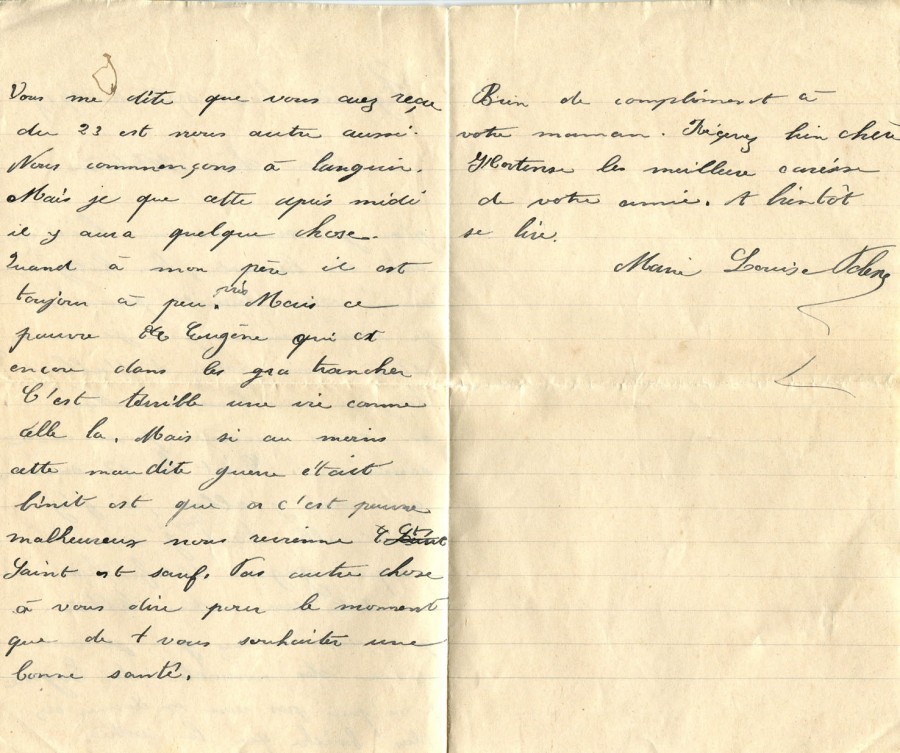 Vous me dite que vous avez reçu
du 23 est nous autre aussi.
Nous commençons à languir.
Mais je que cette après midi
il y aura quelque chose.
Quand à mon père il est
toujour à peu près. Mais ce
pauvre Eugène qui est
encore dans les trancher
C'est terrible une vie comme
celle la. Mais si au moins
cette maudite guerre c'était
finit est que c'est pauvre
malheureux nous revienne
Saint et sauf. Pas autre chose
à vous dire pour le moment
que de vous souhaiter une
bonne santé.
Bien de complément à
votre maman. Reçevez bien chère
Hortense les meilleure caresse
de votre amie. A bientôt
se lire.
Marie Louise